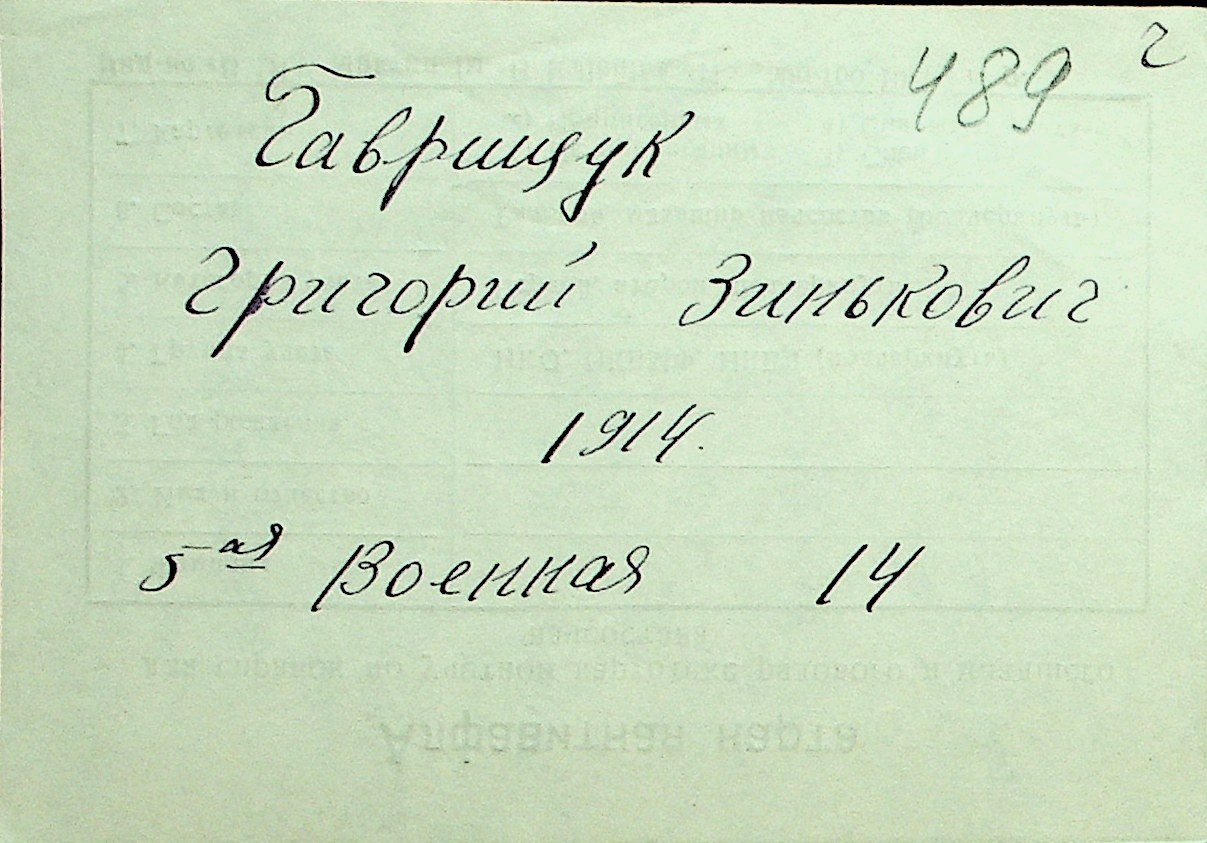 489 г
Гаврищук
Григорий Зинькович
1914.
5-ая Военная 14